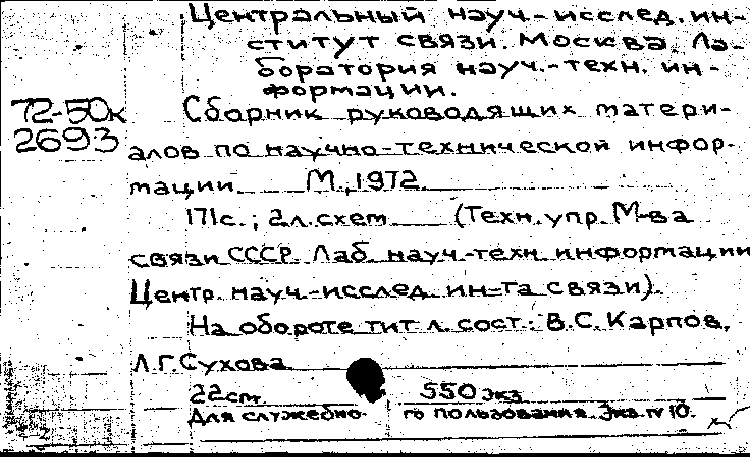 Центральный науч.-исслед. ин-
ститут связи. Москва. Ла-
боратория науч.-техн. ин-
формации.
72-50к
2693
Сборник руководящих матери-
алов по научно-технической инфор-
мации. М., 1972.
171 с.; 2 л. схем. (Техн. упр. М-ва
связи СССР. Лаб. науч.-техн. информации
Центр. науч.-исслед. ин-та связи).
На обороте тит. л. сост.: В.С. Карпов,
Л.Г. Сухова
22 см. 550 экз.
Для служебно- го пользования. Экз. № 10.